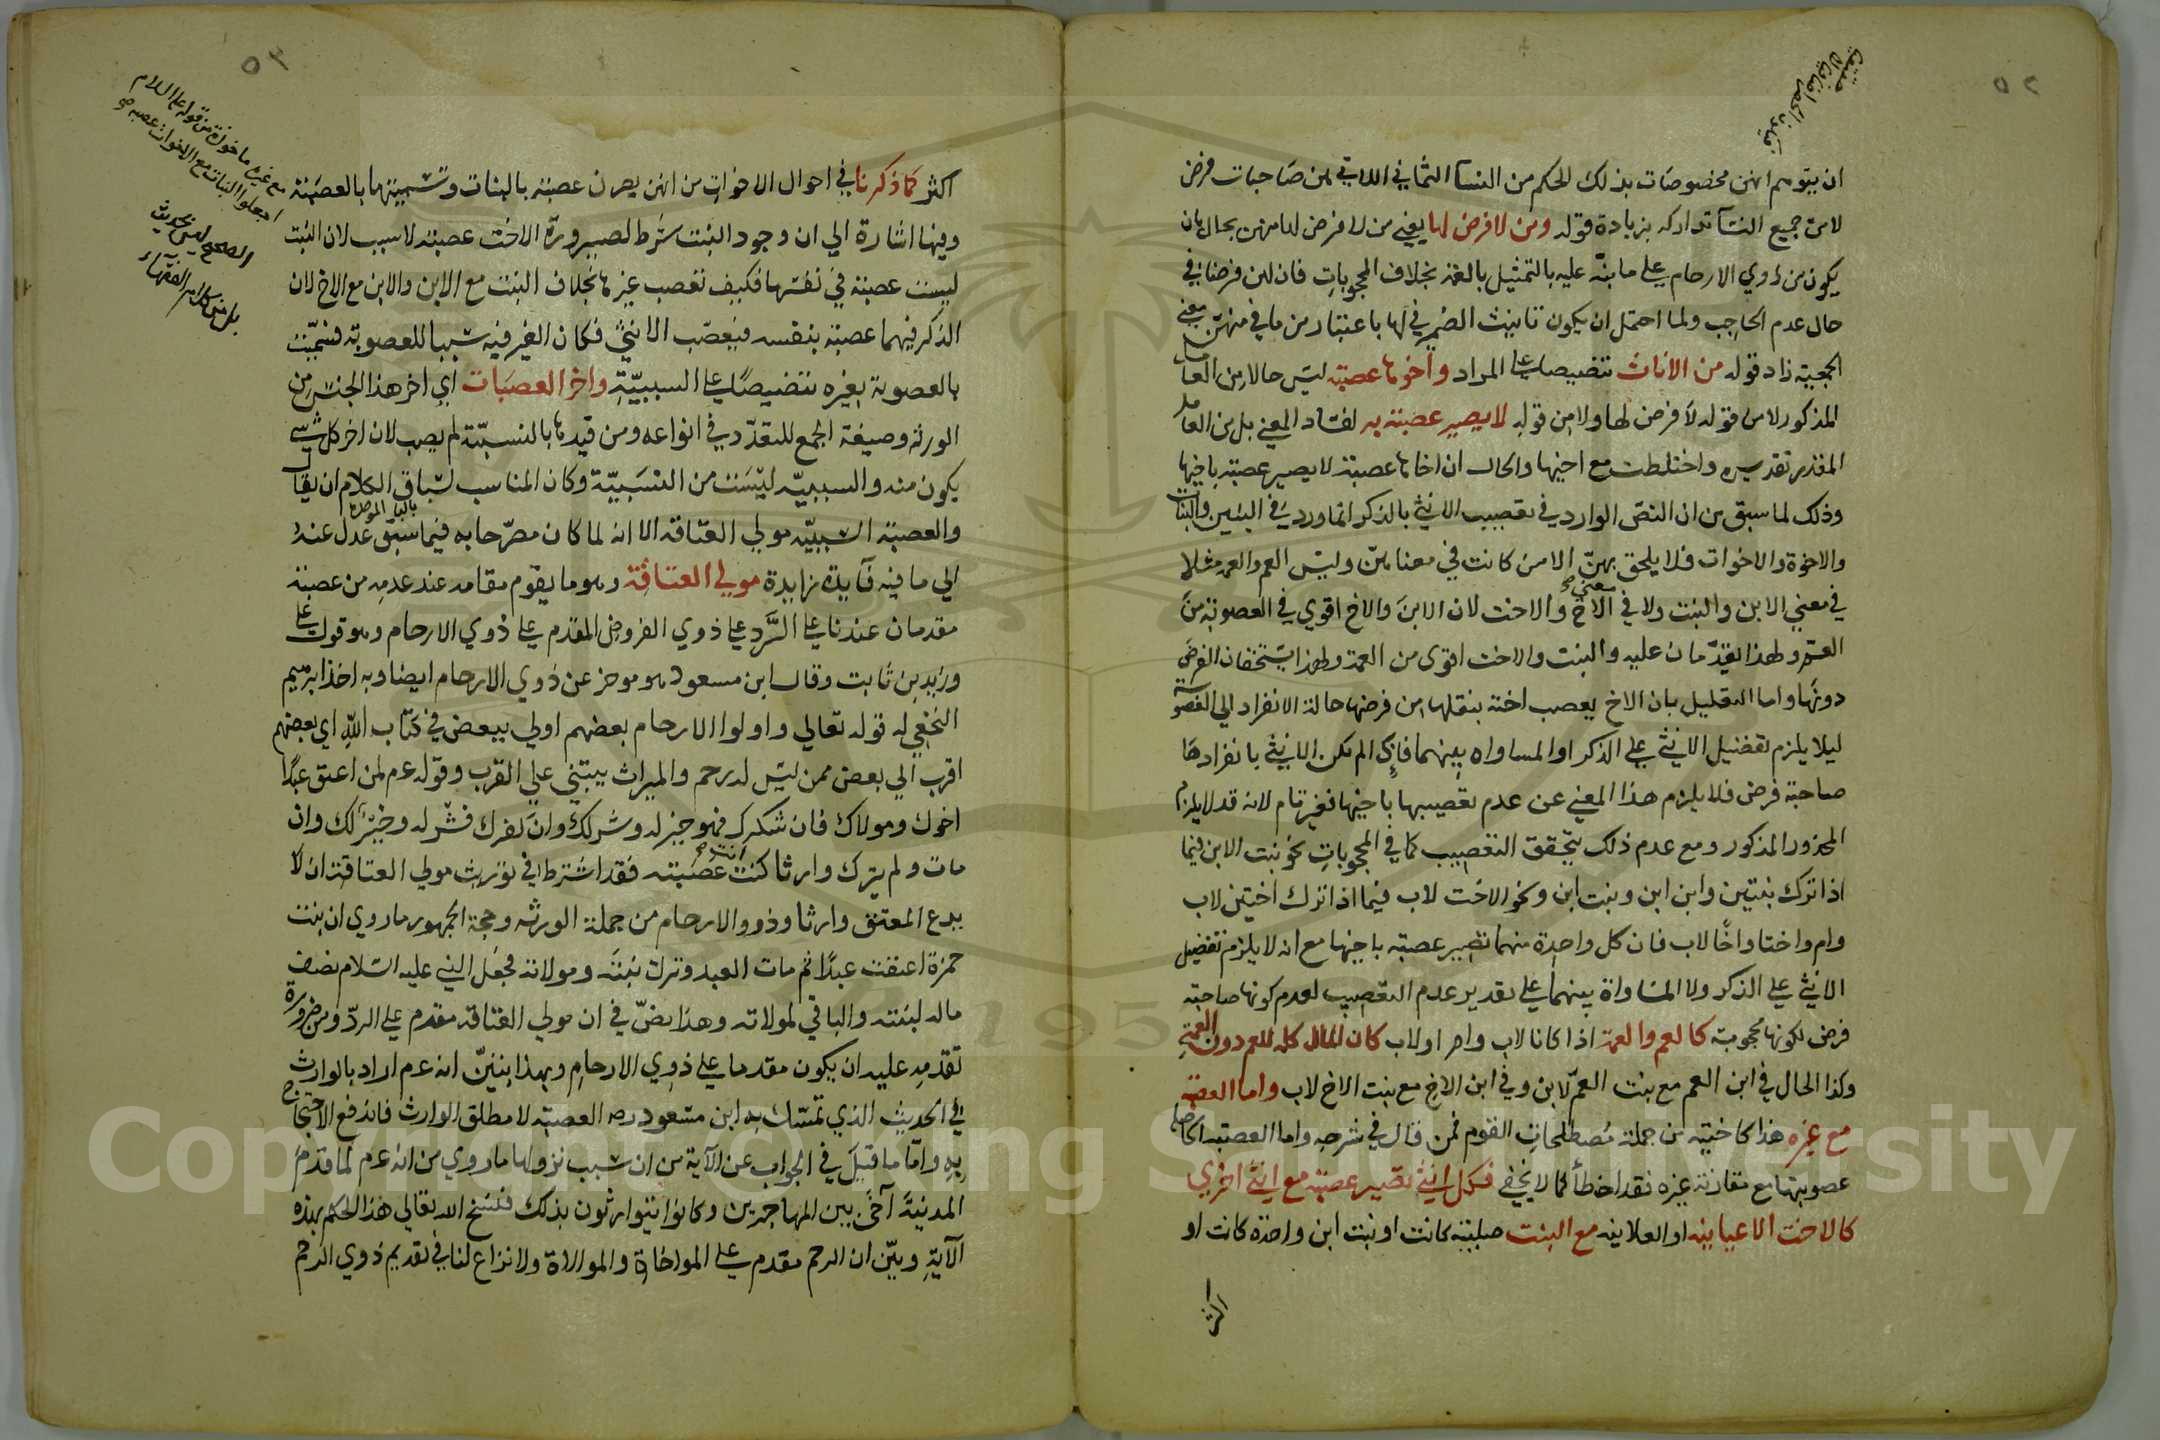 ٥٢
ان يتوهم انهن مخصوصات بذلك الحكم من النسآ الثماني اللاتي هن صاحبات فرض
لامن جميع النسآ تداركه بزيادة قوله ومن لا فرض لها يعني من لا فرض لها منهن بحال بان
يكون من ذوي الارحام على ما نبّه عليه بالتمثيل بالعمة بخلاف المحجوبات فان لهن فرضا في
حال عدم الحاجب ولما احتمل ان يكون تانيث الضمير في لها باعتبار من ما في منهنّ معني
الجمعية زاد قوله من الاناث تنضيصا على المراد وأخوها عصبته ليس حالا من العامل
المذكور لا من قوله لا فرض لها ولا من قوله لا يصير عصبة به لفساد المعني بل من العامل
المقدر تقديره واختلطت مع اخيها والحال ان اخاها عصبة لا يصير عصبة باخيها
وذلك لما سبق من ان النص الوارد في تعصيب الانثي بالذكر انما ورد في البنين والبنات
والاخوة والاخوات فلا يلحق بهنّ الا من كانت في معناهنّ وليس العم والعمة مثلا
في معني الابن والبنت ولا في معني الاخ والاخت لان الابن والاخ اقوي في العصوبة من
العم ولهذا يقدّمان عليه والبنت والاخت اقوى من العمة ولهذا يستحقان الفرض
دونها واما التعليل بان الاخ يعصب اخته بنقلها من فرضها حالة الانفراد الي العصوبة
ليلا يلزم تفضيل الانثي على الذكر او المساواه بينهما فاذا لم تكن الانثي بانفرادها
صاحبة فرض فلا يلزم هذا المعني عن عدم تعصيبها باخيها فغير تام لانه قد لا يلزم
المحذور المذكور ومع عدم ذلك يتحقق التعصيب كما في المحجوبات نحو بنت الابن فيما
اذا ترك بنتين وابن ابن وبنت ابن ونحو الاخت لاب فيما اذا ترك اختين لاب
وام واختا واخا لاب فان كل واحدة منهما تصير عصبة باخيها مع انه لا يلزم تفضيل
الانثي على الذكر ولا المساواة بينهما على تقدير عدم التعصيب لعدم كونها صاحبة
فرض لكونها محجوبة كالعم والعمة اذا كانا لاب وام او لاب كان المال كله للعم دون العمة
وكذا الحال في ابن العم مع بنت العمّ لابن وفي ابن الاخ مع بنت الاخ لاب واما العصبة
مع غيره هذا كاختيه من جملة مصطلحات القوم فمن قال في شرحه واما العصبة الحاصل
عصوبتها مع مقارنة غيره فقد اخطأ كما لا يخفي فكل انثي تصير عصبة مع انثي اخري
كالاخت الاعيانية او العلاتية مع البنت صلبية كانت او بنت ابن واحدة كانت او
اكثر
٥٣
مع غيره ماخوذة من قوله عليه السلام
اجعلوا البنات مع الاخوات عصبة صح
الصحيح ليس بحديث
بل من كلام الفقهاء
اكثر كما ذكرنا في احوال الاخوات من انهن يصرن عصبة بالبنات وتسميتها بالعصبة
وفيها اشارة الي ان وجود البنت شرط لصيرورة الاخت عصبة لا سبب لان البنت
ليست عصبة في نفسها فكيف تعصب غيرها بخلاف البنت مع الابن والابن مع الاخ لان
الذكر فيهما عصبة بنفسه فيعصّب الانثي فكان الغير فيه سببا للعصوبة فسمّيت
بالعصوبة بغيره تنضيصًا على السببيّة واخر العصبات اي اخر هذا الجنس من
الورثه وصيغة الجمع للتعدّد في انواعه ومن قيدها بالنسبيّة لم يصب لان اخر كل شي
يكون منه والسببيه ليست من النسبيّة وكان المناسب لسباق بالباء الموحدة الكلام ان يقال
والعصبة السببيّه مولي العتاقة الا انه لما كان مصرّحا به فيما سبق عدل عنه
الي ما فيه فآيدة زايدة مولي العتاقة وهو ما يقوم مقامه عند عدمه من عصبته
مقدمان عندنا على الرَّد على ذوي الفروض المقدم على ذوي الارحام وهو قول على
وزيد بن ثابت وقال ابن مسعود هو موخر عن ذوي الارحام ايضا وبه اخذ ابرهيم
النخعي له قوله تعالي واولوا الارحام بعضهم اولي ببعض في كتاب اللّه اي بعضهم
اقرب الي بعض ممن ليس له رحم والميراث يبتني علي القرب وقوله عم لمن اعتق عبدًا
اخوك ومولاك فان شكرك فهو خير له وشر لك وان كفرك فشر له وخير لك وان
مات ولم يترك وارثا كنت انت صح عصبته فقد اشترط في توريث مولي العتاقة ان لا
يدع المعتق وارثا وذووا الارحام من جملة الورثه وحجة الجمهور ما روي ان بنت
حمزة اعتقت عبدًا ثم مات العبد وترك بنته ومولاته فجعل النبي عليه السلام نصف
ماله لبنته والباقي لمولاته وهذا نصّ في ان مولي العتاقه مقدم على الردّ ومن ضرورة
تقدّمه عليه ان يكون مقدما على ذوي الارحام وبهذا يتبيّن انه عم اراد بالوارث
في الحديث الذي تمسّك به ابن مسعود رضه العصبة لا مطلق الوارث فاندفع الاحتجاج
به وامّا ما قيل في الجواب عن الآية من ان سبب نزولها ما روي من انه عم لما قدم
المدينة آخى بين المهاجرين وكانوا يتوارثون بذلك فنسخ الله تعالي هذا الحكم بهذه
الآية وبيّن ان الرحم مقدم على المواخاة والموالاة ولا نزاع لنا في تقديم ذوي الرحم
Copyright © King Saud University
195